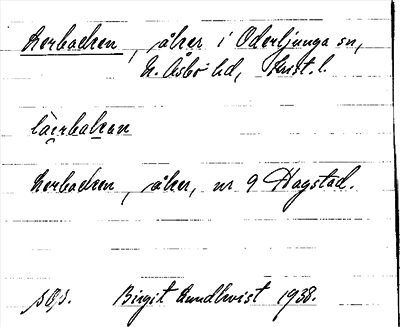 Lerbacken, åker i Oderljunga sn,
N. Åsbo hd, Krist. l.
lairbakan
Lerbacken, åker, nr 9 Hagstad.
Birgit Lundkvist 1938.